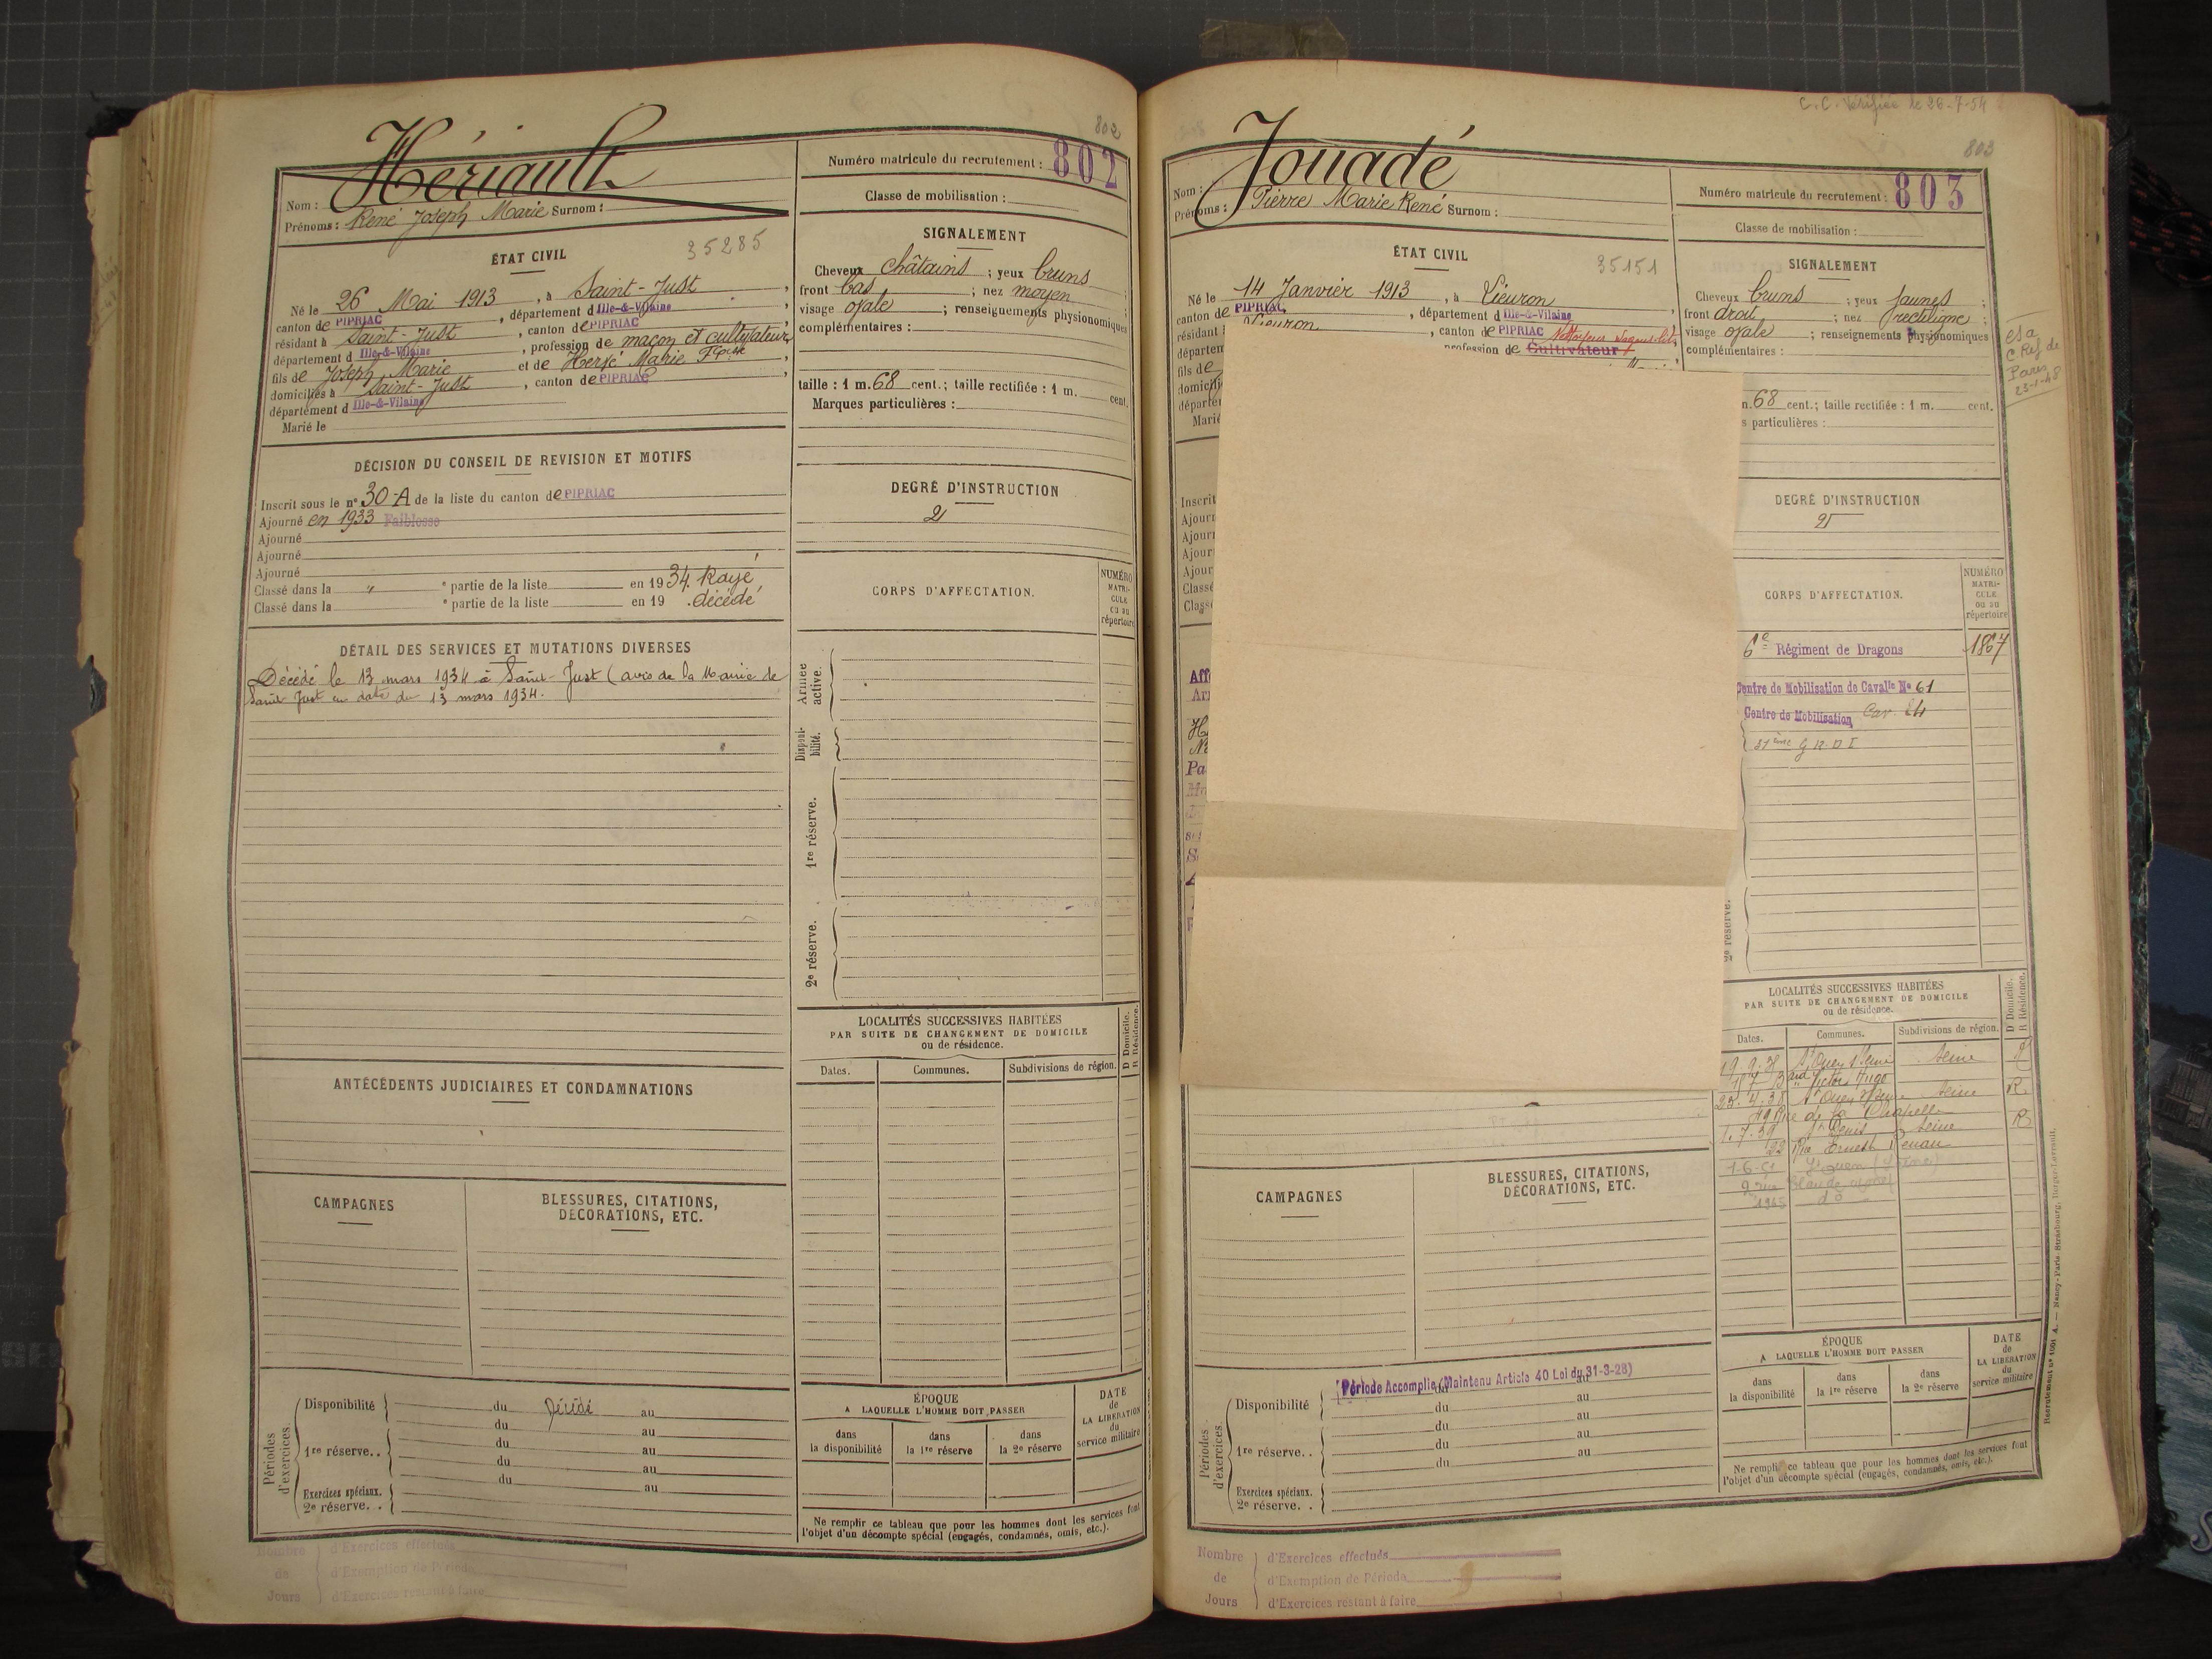 802
Hériault
Nom :
Prénoms : René Joseph Marie Surnom :
Numéro matricule du recrutement : 802
Classe de mobilisation :
ÉTAT CIVIL
35285
Né le 26 Mai 1913, à Saint-Just,
canton de PIPRIAC, département d Ille-&-Vilaine,
résidant à Saint-Just, canton de PIPRIAC,
département d Ille-&-Vilaine, profession de maçon et cultivateur,
fils de Joseph Marie et de Hersé Marie
domiciliés à Saint-Just, canton de PIPRIAC,
département d Ille-&-Vilaine
Marié le
SIGNALEMENT
Cheveux châtains ; yeux bruns ;
front bas ; nez moyen ;
visage ovale ; renseignements physionomiques
complémentaires :
taille : 1 m. 68 cent.; taille rectifiée : 1 m. cent.
Marques particulières :
DÉCISION DU CONSEIL DE REVISION ET MOTIFS
Inscrit sous le nº 30-A de la liste du canton de PIPRIAC
Ajourné en 1933 Faiblesse
Ajourné
Ajourné
Ajourné
Classé dans la " ᵉ partie de la liste en 1934. Rayé,
Classé dans la ᵉ partie de la liste en 19 . décédé
DEGRÉ D'INSTRUCTION
2
CORPS D'AFFECTATION.
NUMÉRO
MATRI-
CULE
ou au
répertoire
DÉTAIL DES SERVICES ET MUTATIONS DIVERSES
Décédé le 13 mars 1934 à Saint-Just (avis de la Mairie de
Saint Just en date du 13 mars 1934.
Armée
active.
Disponi-
bilité.
1re réserve.
2e réserve.
LOCALITÉS SUCCESSIVES HABITÉES
PAR SUITE DE CHANGEMENT DE DOMICILE
ou de résidence.
D Domicile.
R Résidence.
Dates.
Communes.
Subdivisions de région.
ANTÉCÉDENTS JUDICIAIRES ET CONDAMNATIONS
CAMPAGNES
BLESSURES, CITATIONS,
DÉCORATIONS, ETC.
Périodes
d'exercices.
Disponibilité
du Décédé au
du au
1re réserve..
du au
du au
du au
Exercices spéciaux.
2e réserve. .
ÉPOQUE
A LAQUELLE L'HOMME DOIT PASSER
dans
la disponibilité
dans
la 1re réserve
dans
la 2e réserve
DATE
de
LA LIBÉRATION
du
service militaire
Ne remplir ce tableau que pour les hommes dont les services font
l'objet d'un décompte spécial (engagés, condamnés, omis, etc.).
Nombre
de
Jours
d'Exercices effectués
d'Exemption de Période
d'Exercices restant à faire
C.C. Vérifiée le 26-7-54
803
Jouadé
Nom :
Prénoms : Pierre Marie René Surnom :
Numéro matricule du recrutement : 803
Classe de mobilisation :
ÉTAT CIVIL
35151
Né le 14 Janvier 1913, à Lieuron,
canton de PIPRIAC, département d Ille-&-Vilaine,
résidant à Lieuron, canton de PIPRIAC
départem profession de Cultivateur
fils de
domicili
départe
Marié
SIGNALEMENT
Cheveux bruns ; yeux jaunes ;
front droit ; nez rectiligne ;
visage ovale ; renseignements physionomiques
complémentaires :
68 cent.; taille rectifiée : 1 m. cent.
particulières :
Paris
23-1-48
Inscrit
Ajour
Ajour
Ajour
Ajour
Classé
Class
DEGRÉ D'INSTRUCTION
2
CORPS D'AFFECTATION.
NUMÉRO
MATRI-
CULE
ou au
répertoire
6e Régiment de Dragons 1867
Centre de Mobilisation de Cavalie Nº 61
Centre de Mobilisation Car. 24
G R D I
2e réserve.
LOCALITÉS SUCCESSIVES HABITÉES
PAR SUITE DE CHANGEMENT DE DOMICILE
ou de résidence.
D Domicile.
R Résidence.
Dates.
Communes.
Subdivisions de région.
St Ouen s/Seine Seine R
Bard Victor Hugo
25.4.38 St Ouen s/Seine Seine R.
49 Rue de la Chapelle
1.7.39 St Denis Seine R
22 Rue Ernest Renan
St Ouen (Seine)
2 rue Claude Monet
1965 do
CAMPAGNES
BLESSURES, CITATIONS,
DÉCORATIONS, ETC.
Période Accomplie (Maintenu Article 40 Loi du 31-3-28)
Périodes
d'exercices.
Disponibilité
du au
du au
du au
1re réserve..
du au
du au
Exercices spéciaux.
2e réserve. .
ÉPOQUE
A LAQUELLE L'HOMME DOIT PASSER
dans
la disponibilité
dans
la 1re réserve
dans
la 2e réserve
DATE
de
LA LIBÉRATION
du
service militaire
Ne remplir ce tableau que pour les hommes dont les services font
l'objet d'un décompte spécial (engagés, condamnés, omis, etc.).
Nombre
de
Jours
d'Exercices effectués
d'Exemption de Période
d'Exercices restant à faire
Recrutement nº 1001 A. — Nancy-Paris-Strasbourg, Berger-Levrault.